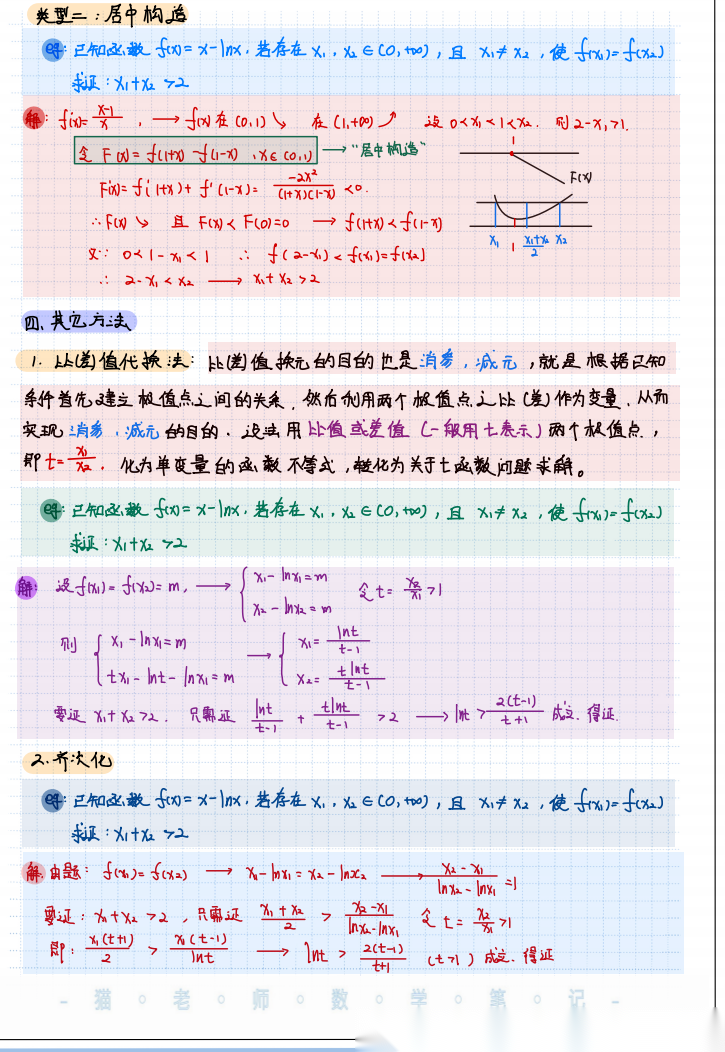 类型二：居中构造
例：已知函数 f(x)= x-lnx. 若存在 x₁, x₂∈(0,+∞)，且 x₁≠x₂，使 f(x₁)=f(x₂)
求证：x₁+x₂>2
解：f'(x)= \frac{x-1}{x}，→ f(x)在(0,1)↘ 在(1,+∞)↗ 设0<x₁<1<x₂. 则2-x₁>1.
令 F(x)=f(1+x)-f(1-x)，x∈(0,1) → “居中构造”
F'(x)=f'(1+x)+f'(1-x)= \frac{-2x²}{(1+x)(1-x)} <0.
∴F(x)↘ 且 F(x)<F(0)=0 → f(1+x)<f(1-x)
又∵ 0<1-x₁<1 ∴ f(2-x₁)<f(x₁)=f(x₂)
∴ 2-x₁<x₂ → x₁+x₂>2
1
F(x)
x₁ 1 \frac{x₁+x₂}{2} x₂
四、其它方法
1. 比(差)值代换法：比(差)值换元的目的也是消参，减元，就是根据已知
条件首先建立极值点之间的关系，然后利用两个极值点之比(差)作为变量，从而
实现消参，减元的目的. 设法用比值或差值(一般用t表示)两个极值点，
即t=\frac{x₁}{x₂}. 化为单变量的函数不等式，转化为关于t函数问题求解。
例：已知函数 f(x)= x-lnx. 若存在 x₁, x₂∈(0,+∞)，且 x₁≠x₂，使 f(x₁)=f(x₂)
求证：x₁+x₂>2
解：设f(x₁)=f(x₂)=m, → { x₁-lnx₁=m  x₂-lnx₂=m 令t=\frac{x₂}{x₁}>1
则 { x₁-lnx₁=m  tx₁-lnt-lnx₁=m → { x₁=\frac{lnt}{t-1}  x₂=\frac{tlnt}{t-1}
要证 x₁+x₂>2. 只需证 \frac{lnt}{t-1} + \frac{tlnt}{t-1} >2 → lnt>\frac{2(t-1)}{t+1} 成立. 得证.
2.齐次化
例：已知函数 f(x)= x-lnx. 若存在 x₁, x₂∈(0,+∞)，且 x₁≠x₂，使 f(x₁)=f(x₂)
求证：x₁+x₂>2
解.由题：f(x₁)=f(x₂) → x₁-lnx₁=x₂-lnx₂ → \frac{x₂-x₁}{lnx₂-lnx₁}=1
要证：x₁+x₂>2，只需证 \frac{x₁+x₂}{2} > \frac{x₂-x₁}{lnx₂-lnx₁} 令t=\frac{x₂}{x₁}>1
即：\frac{x₁(t+1)}{2} > \frac{x₁(t-1)}{lnt} → lnt > \frac{2(t-1)}{t+1} (t>1) 成立. 得证
- 猫 ◦ 老 ◦ 师 ◦ 数 ◦ 学 ◦ 笔 ◦ 记 -